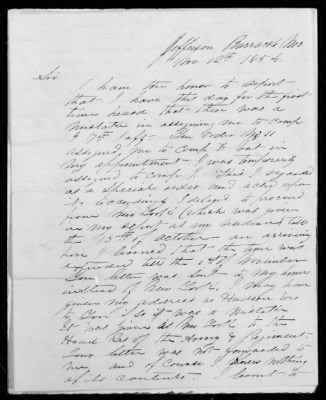 Jefferson Barracks, Mo
Nov 12th 1854
Sir
I have the honor to report
that I have this day for the first
time heard that there was a
mistake in assigning me to Comp
7th Inft. Gen Order No 11
assigned me to Comp F but in
my appointment I was temporarily
assigned to Comp I. This I regarded
as a special order and acted upon
it accordingly. I delayed to proceed
from New York (which was given
in my report as my residence) till
the 15th of October and on arriving
here I learned that the time was
extended till the 1st of November
Your letter was sent to my home
instead of New York. I may have
given my address as Hudson
to Gen if so it was a mistake
It was given as New York to the
Head Qrs of the Army & Regiment
Your letter was not forwarded to
me and of course I knew nothing
of its contents. I want to